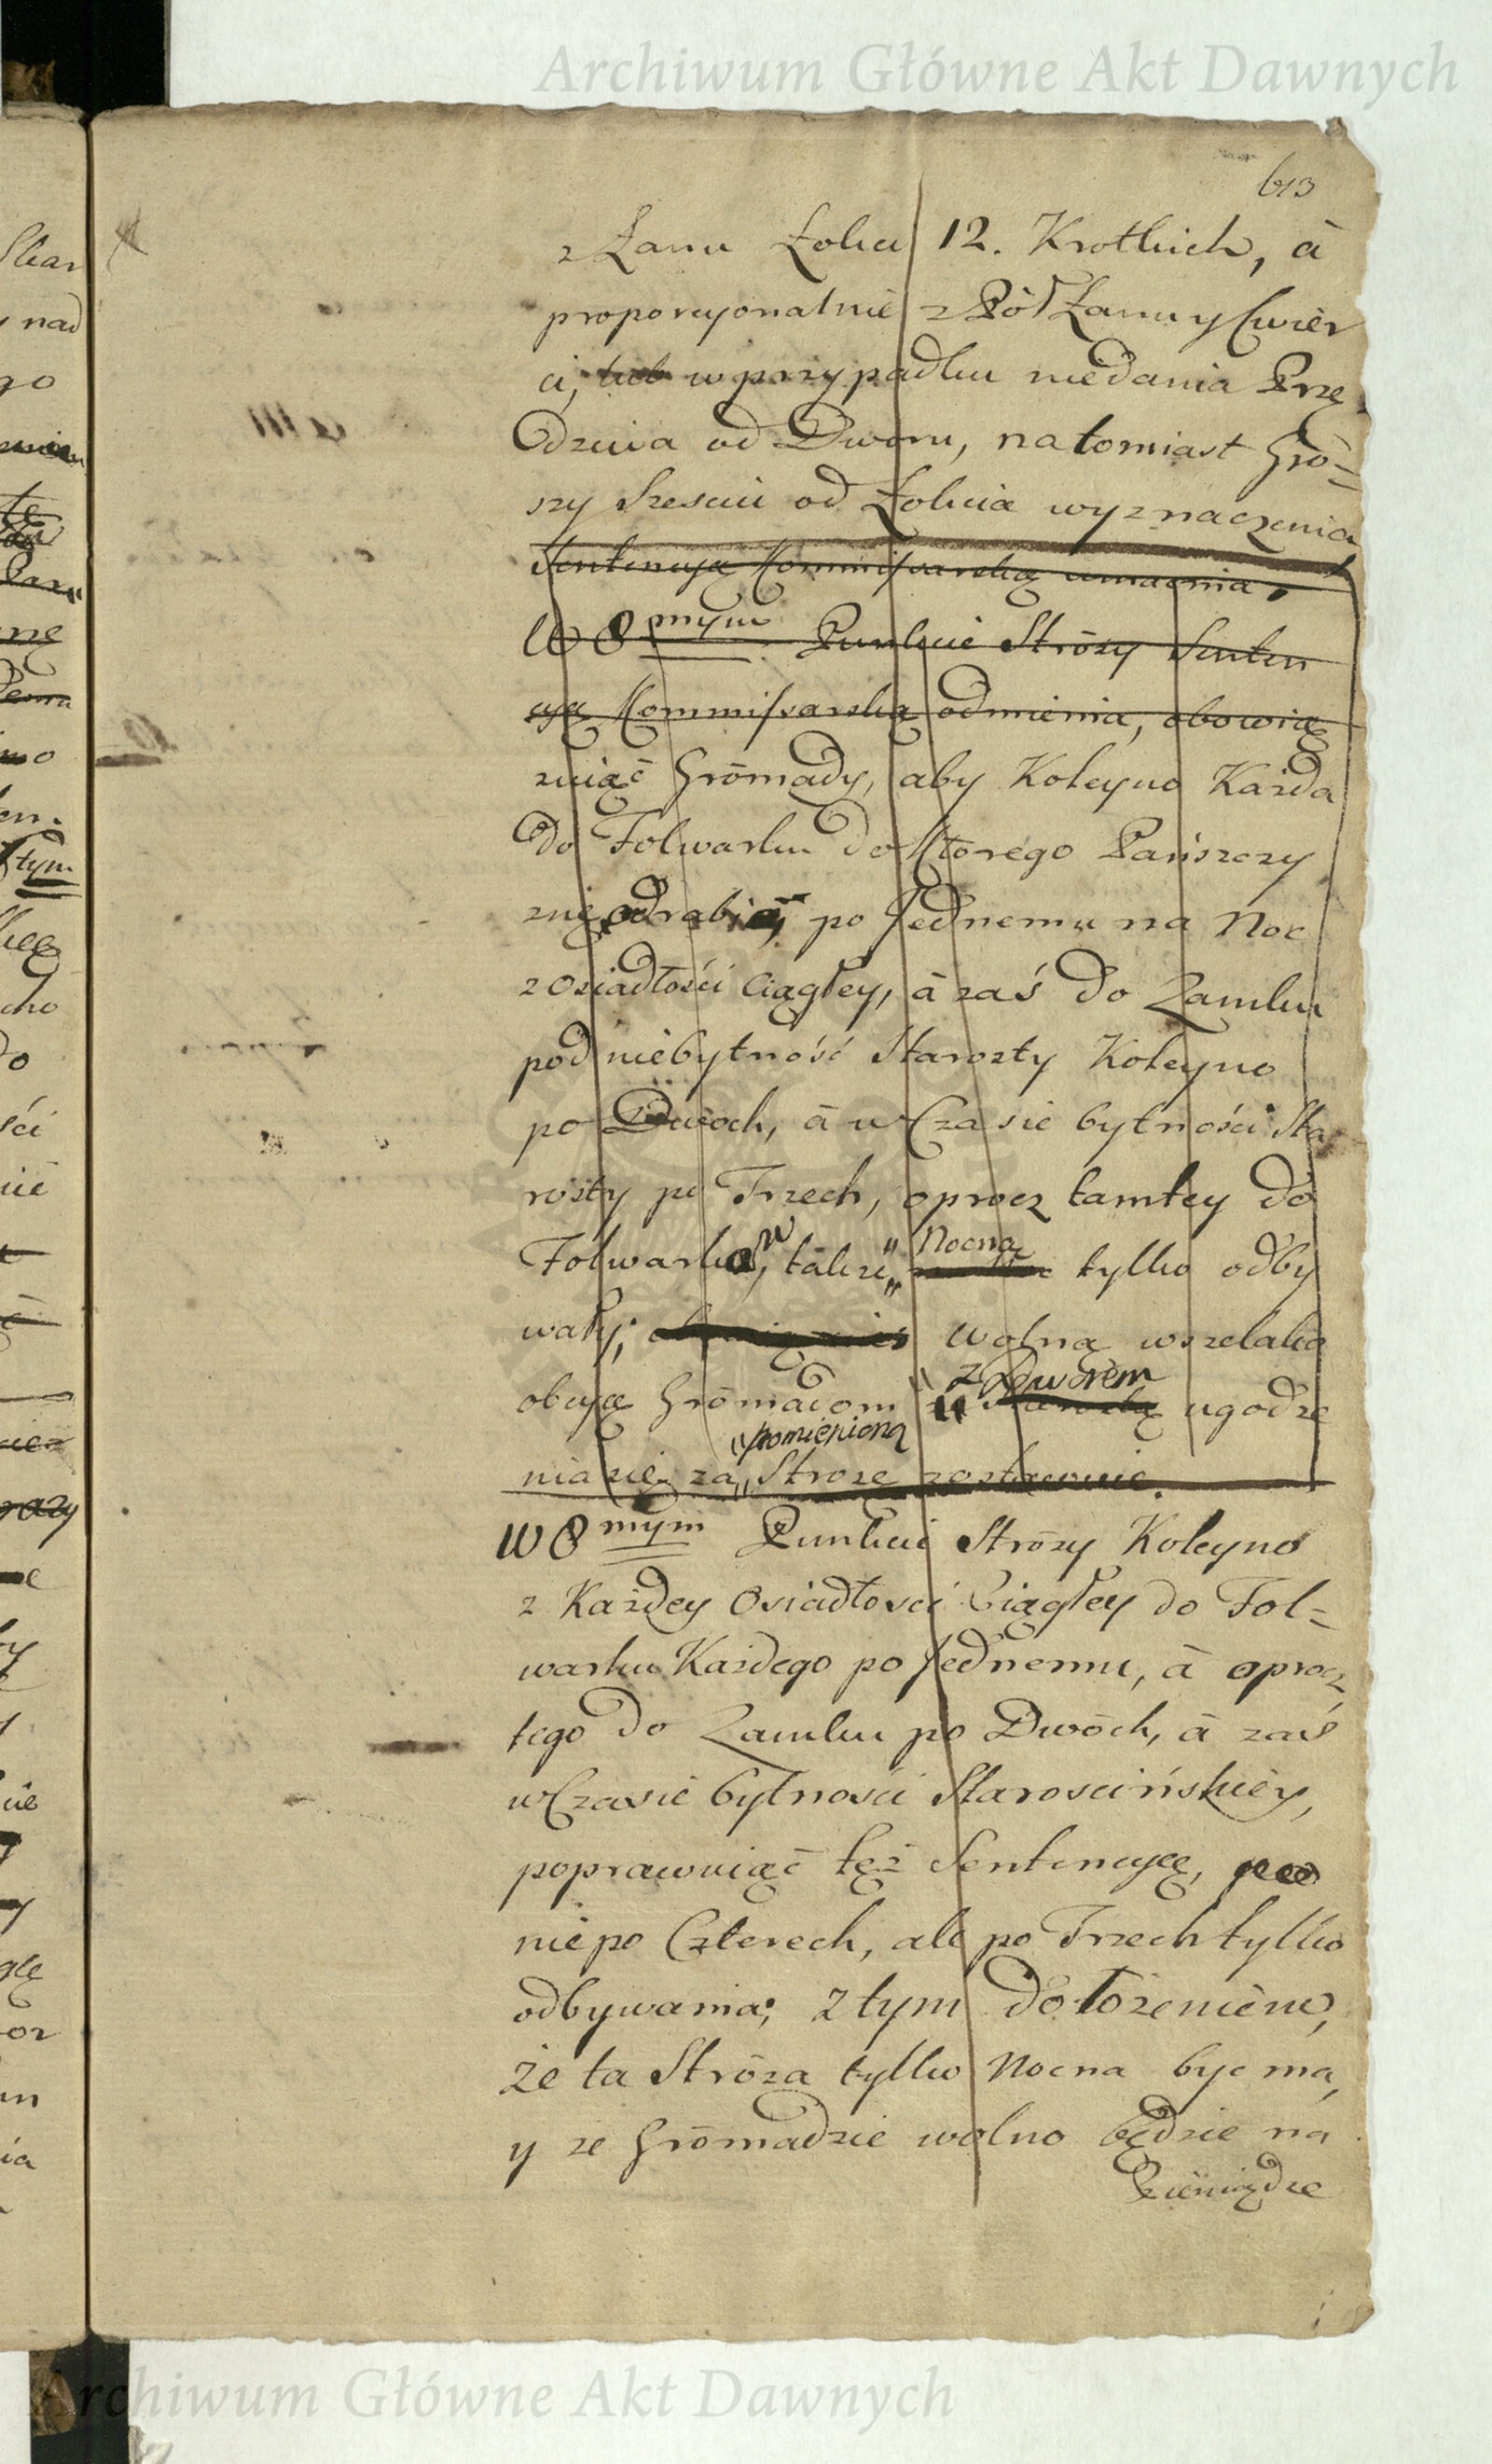 Archiwum Główne Akt Dawnych
613
z Łanu Łokci 12. Krotkich, à
proporcyonalnie z Pół Łanu y Cwier
ci, lub w przypadku niedania Przę
dziwa od Dworu, natomiast Gro=
szy Szesciu od Łokcia wyznaczenia
Sentencyą Kommissarską umacnia.
W 8mym Punkcie Stróży Senten
cyą Kommissarską odmienia, obowią
zuiąc Gromady, aby Koleyno Każda
do Folwarku do Ktorego Pańszczy
znę odrabia, po Jednemu na Noc
z Osiadłości Ciągłey, à zaś do Zamku
pod niebytność Starosty Koleyno
po Dwóch, à w Czasie bytności Sta
rosty po Trzech, oprocz tamtey do
Folwarków, także Nocną tylko odby
wały; wolną wszelako
obcyą Gromadom z Dworem ugodze
nia się za pomienioną Stroże zostawuie.
W 8mym Punkcie Stróży Koleyno
z Każdey Osiadłosci Ciągłey do Fol=
warku Każdego po Jednemu, à oprocz
tego do Zamku po Dwóch, à zaś
w Czasie bytnosci Staroscińskiey,
poprawuiąc tęż Sentencyą,
nie po Czterech, ale po Trzech tylko
odbywania; z tym dołożeniem,
że ta Stróża tylko Nocna byc ma,
y ze Gromadzie wolno będzie na
Pieniądze
Archiwum Główne Akt Dawnych